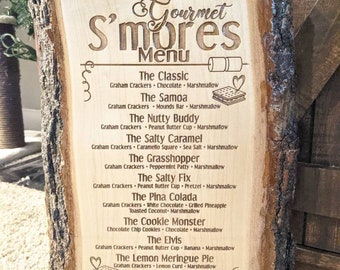 Gourmet
S'mores
Menu
The Classic
Graham Crackers • Chocolate • Marshmallow
The Samoa
Graham Crackers • Mounds Bar • Marshmallow
The Nutty Buddy
Graham Crackers • Peanut Butter Cup • Marshmallow
The Salty Caramel
Graham Crackers • Caramello Square • Sea Salt • Marshmallow
The Grasshopper
Graham Crackers • Peppermint Patty • Marshmallow
The Salty Fix
Graham Crackers • Peanut Butter Cup • Pretzel • Marshmallow
The Pina Colada
Graham Crackers • White Chocolate • Grilled Pineapple
Toasted Coconut • Marshmallow
The Cookie Monster
Chocolate Chip Cookies • Chocolate • Marshmallow
The Elvis
Graham Crackers • Peanut Butter Cup • Banana • Marshmallow
The Lemon Meringue Pie
Graham Crackers • Lemon Curd • Marshmallow